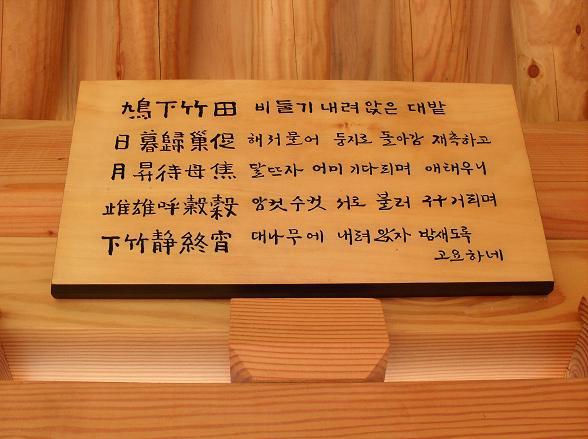 鳩下竹田 비둘기 내려 앉은 대밭
日暮歸巢促 해 저물어 둥지로 돌아감 재촉하고
月昇待母焦 달뜨자 어미 기다리며 애태우니
雌雄呼穀穀 암컷 수컷 서로 불러 구구거리며
下竹靜終宵 대나무에 내려 앉자 밤새도록
고요하네